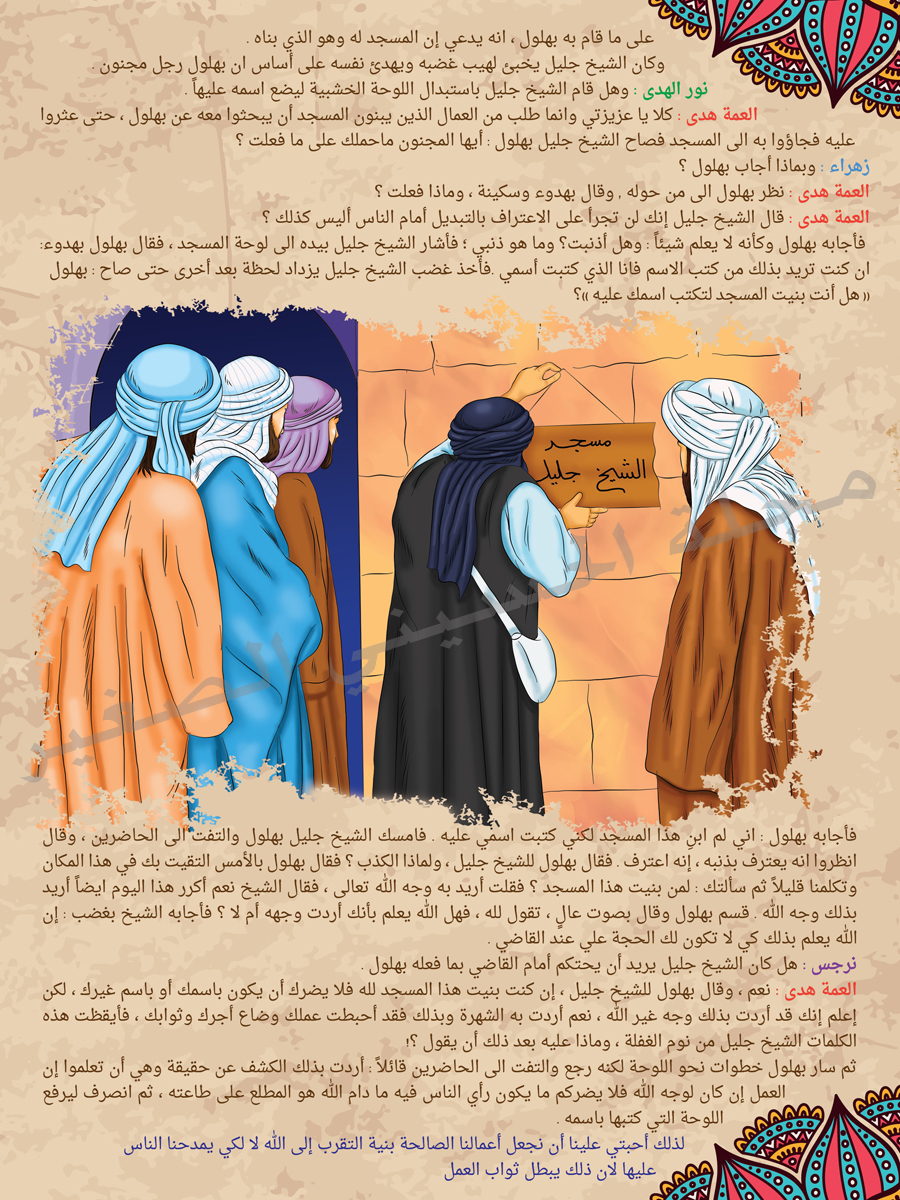 على ما قام به بهلول ، انه يدعي إن المسجد له وهو الذي بناه .
وكان الشيخ جليل يخبئ لهيب غضبه ويهدئ نفسه على أساس ان بهلول رجل مجنون .
نور الهدى : وهل قام الشيخ جليل باستبدال اللوحة الخشبية ليضع اسمه عليها ً.
العمة هدى : كلا يا عزيزتي وانما طلب من العمال الذين يبنون المسجد أن يبحثوا معه عن بهلول ، حتى عثروا
عليه فجاؤوا به الى المسجد فصاح الشيخ جليل بهلول : أيها المجنون ماحملك على ما فعلت ؟
زهراء : وبماذا أجاب بهلول ؟
العمة هدى : نظر بهلول الى من حوله , وقال بهدوء وسكينة ، وماذا فعلت ؟
العمة هدى : قال الشيخ جليل إنك لن تجرأ على الاعتراف بالتبديل أمام الناس أليس كذلك ؟
فأجابه بهلول وكأنه لا يعلم شيئاً : وهل أذنبت؟ وما هو ذنبي ؛ فأشار الشيخ جليل بيده الى لوحة المسجد ، فقال بهلول بهدوء:
ان كنت تريد بذلك من كتب الاسم فانا الذي كتبت أسمي .فأخذ غضب الشيخ جليل يزداد لحظة بعد أخرى حتى صاح : بهلول
«هل أنت بنيت المسجد لتكتب اسمك عليه »؟
مسجد
الشيخ جليل
مجلة الحسيني الصغير
فأجابه بهلول : اني لم ابنِ هذا المسجد لكني كتبت اسمي عليه . فامسك الشيخ جليل بهلول والتفت الى الحاضرين ، وقال
انظروا انه يعترف بذنبه ، إنه اعترف . فقال بهلول للشيخ جليل ، ولماذا الكذب ؟ فقال بهلول بالأمس التقيت بك في هذا المكان
وتكلمنا قليلاً ثم سألتك : لمن بنيت هذا المسجد ؟ فقلت أريد به وجه الله تعالى ، فقال الشيخ نعم أكرر هذا اليوم ايضاً أريد
بذلك وجه الله . قسم بهلول وقال بصوت عالٍ ، تقول لله ، فهل الله يعلم بأنك أردت وجهه أم لا ؟ فأجابه الشيخ بغضب : إن
الله يعلم بذلك كي لا تكون لك الحجة علي عند القاضي .
نرجس : هل كان الشيخ جليل يريد أن يحتكم أمام القاضي بما فعله بهلول .
العمة هدى : نعم ، وقال بهلول للشيخ جليل ، إن كنت بنيت هذا المسجد لله فلا يضرك أن يكون باسمك أو باسم غيرك ، لكن
إعلم إنك قد أردت بذلك وجه غير الله ، نعم أردت به الشهرة وبذلك فقد أحبطت عملك وضاع أجرك وثوابك ، فأيقظت هذه
الكلمات الشيخ جليل من نوم الغفلة ، وماذا عليه بعد ذلك أن يقول ؟!
ثم سار بهلول خطوات نحو اللوحة لكنه رجع والتفت الى الحاضرين قائلاً : أردت بذلك الكشف عن حقيقة وهي أن تعلموا إن
العمل إن كان لوجه الله فلا يضركم ما يكون رأي الناس فيه ما دام الله هو المطلع على طاعته ، ثم انصرف ليرفع
اللوحة التي كتبها باسمه .
لذلك أحبتي علينا أن نجعل أعمالنا الصالحة بنية التقرب إلى الله لا لكي يمدحنا الناس
عليها لان ذلك يبطل ثواب العمل